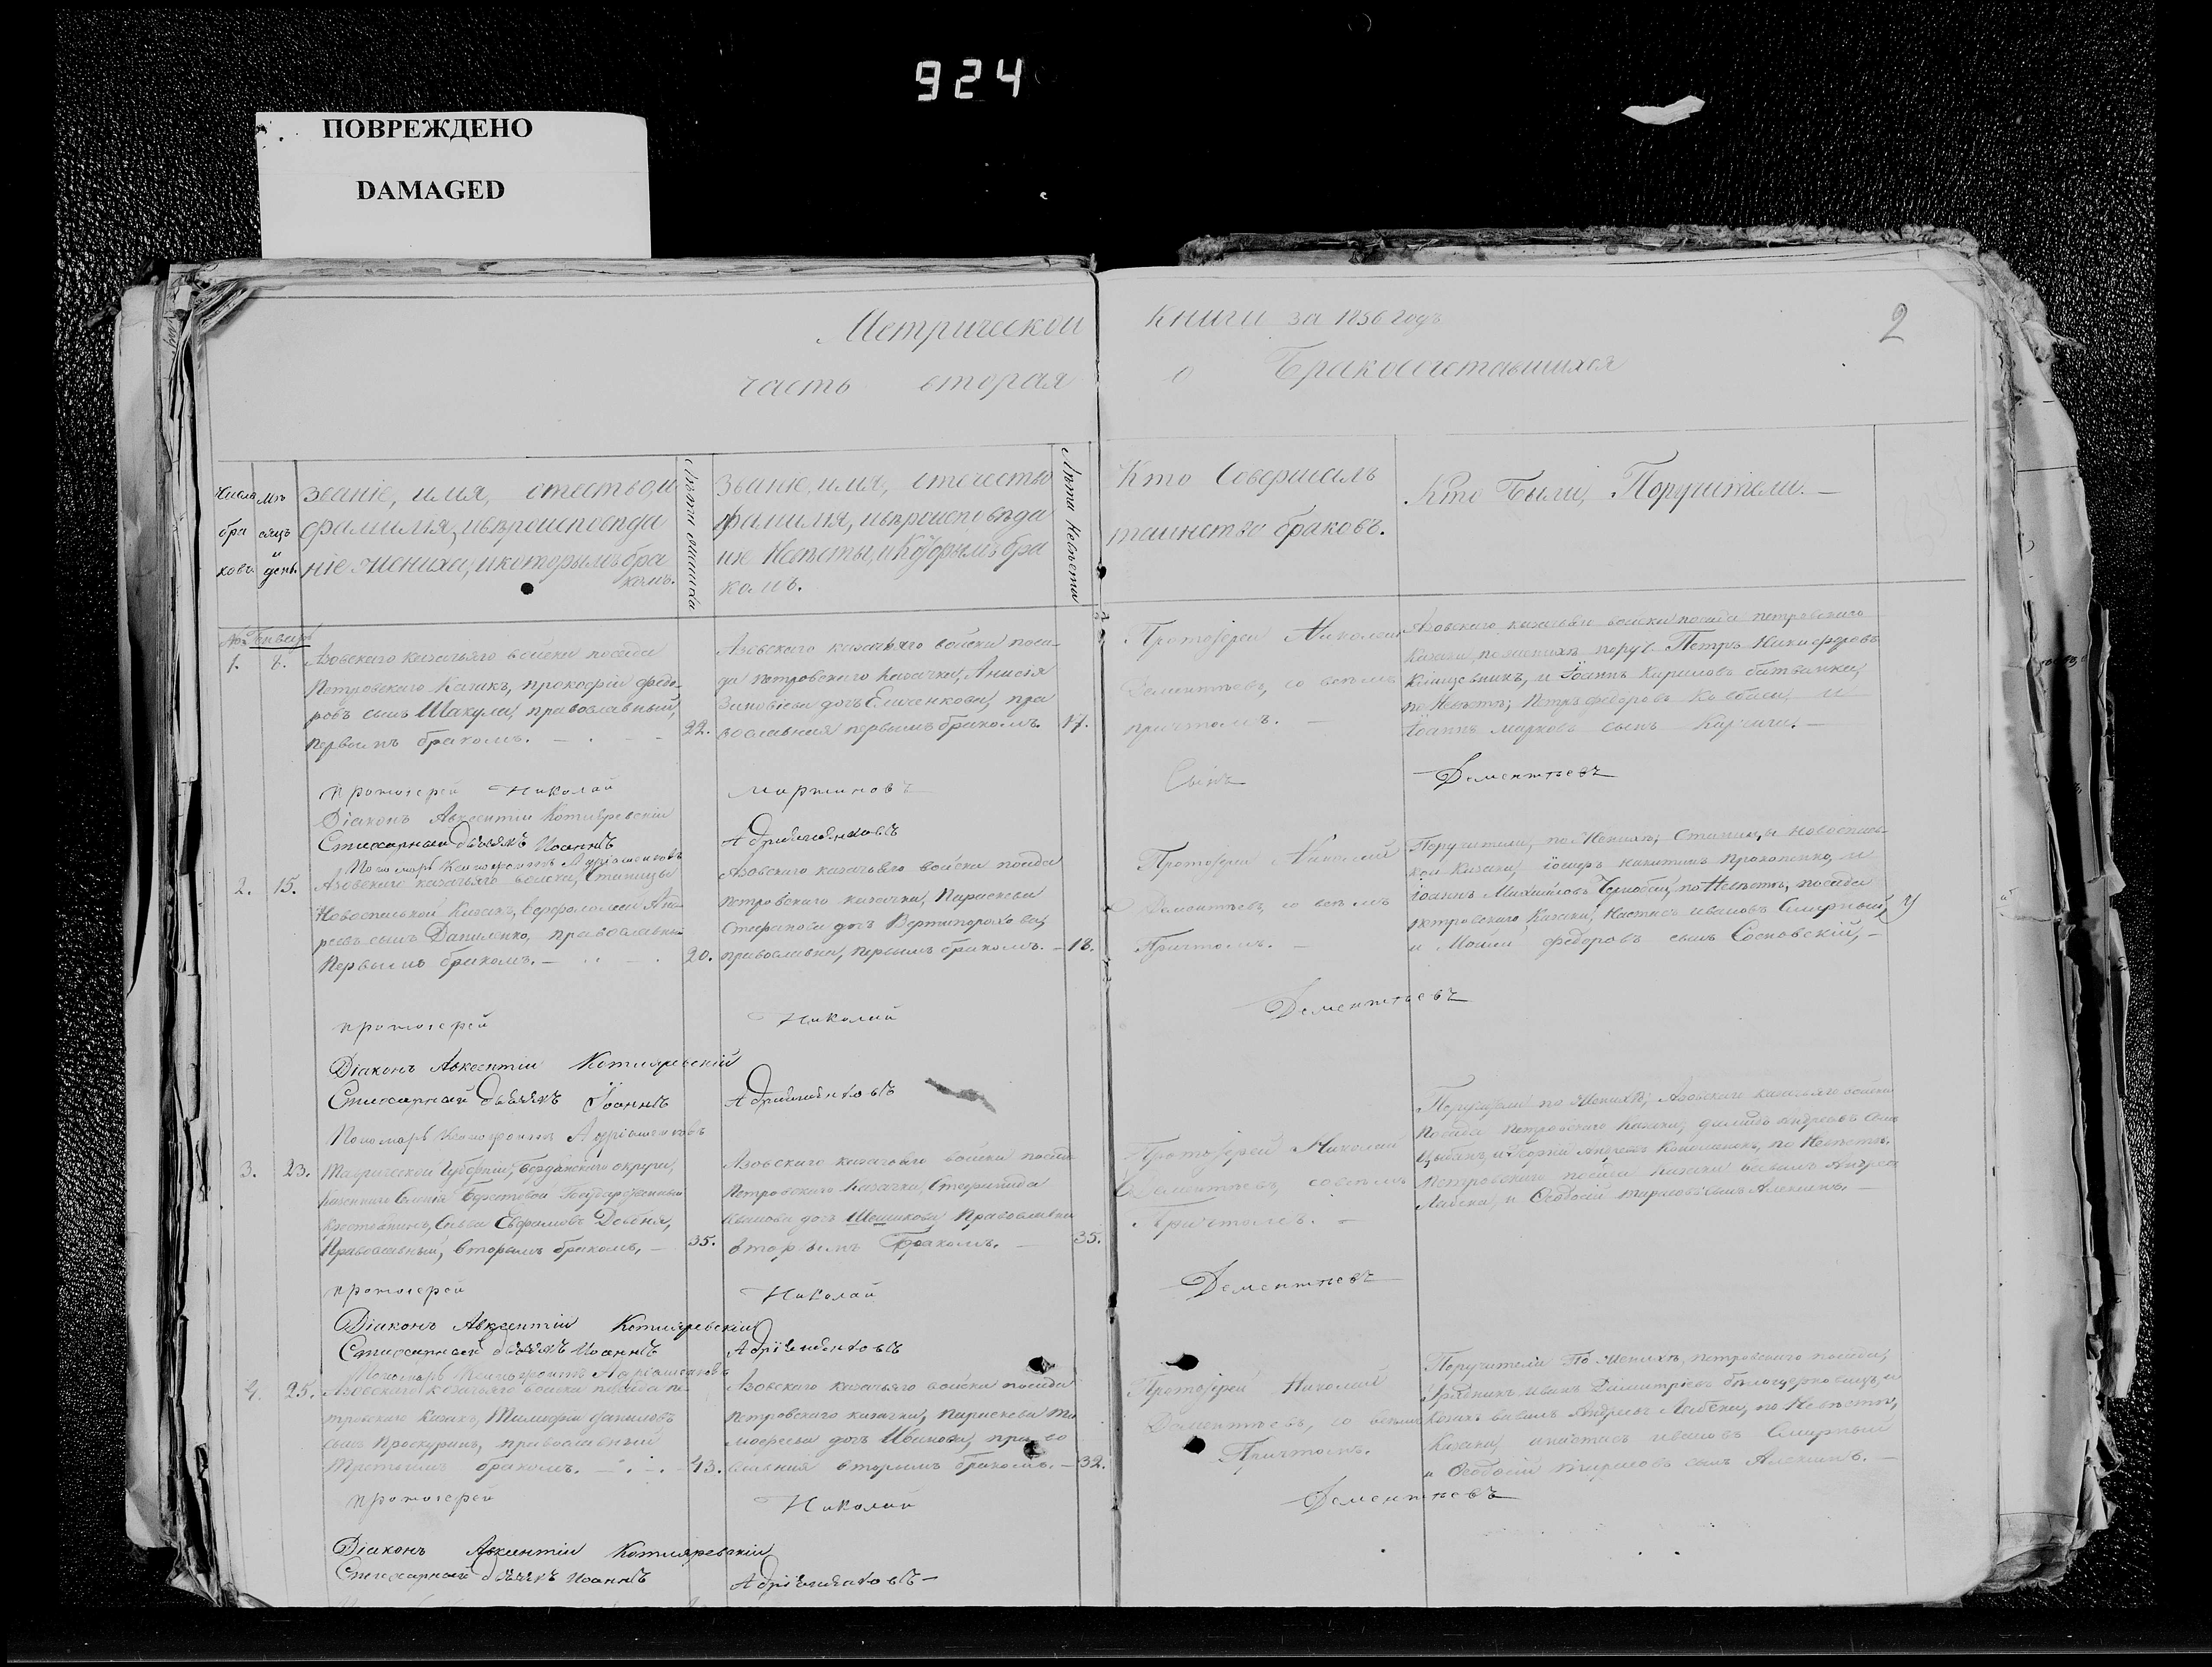 924
ПОВРЕЖДЕНО
DAMAGED
2
Метрической книги за 1856 годъ
часть вторая о Бракосочетавшихся
Числа браковъ
Мѣсяцъ и день
Званіе, имя, отчество, и
фамилія, и вѣроисповѣда
ніе жениха, и которымъ бра
комъ.
Лѣта жениха
Званіе, имя, отчество
фамилія, и вѣроисповѣда
ніе Невѣсты, и которымъ бра
комъ.
Лѣта Невѣсты
Кто Совершалъ
таинство браковъ.
Кто Были, Поручители. —
№ Январь
1.
Азовскаго казачьяго войска посада
Петровскаго Казакъ, прокофій федо-
ровъ сынъ Шакула, православный,
первымъ бракомъ. —
22.
Азовскаго казачьяго войска поса-
да петровскаго казачка, Анисія
Зиновіева дочь Ельченкова, пра
вославная первымъ бракомъ.
17.
Протоіерей Николай
Дементьевъ, со всѣмъ
причтомъ. —
Азовскаго казачьяго войска посада петровскаго
казаки, по женихѣ поруч. Петръ Никифоровъ
и Іоаннъ Кириловъ
по Невѣстѣ; Петръ федоровъ и
Іоаннъ марковъ сынъ
протоіерей Николай Мартиновъ Сынъ Дементьевъ
Діаконъ Авксентій Котляревскій
Стихарный дьячекъ Іоаннъ Адріашенковъ
Пономарь Ксенофонтъ Адріашенковъ
2.
15.
Азовскаго казачьяго войска, Станицы
Новоспаской Казакъ, варфоломей Анд
реевъ сынъ Даниленко, православный
Первымъ бракомъ. —
20.
Азовскаго казачьяго войска посада
петровскаго казачка, Параскева
Стефанова дочь
православная, первымъ бракомъ. —
18.
Протоіерей Николай
Дементьевъ, со всѣмъ
Причтомъ. —
Поручители, по Женихѣ; Станицы новоспас-
кой казаки, іосифъ никитинъ прокопенко, и
іоаннъ Михайловъ по Невѣстѣ, посада
петровскаго Казаки, Настасъ ивановъ Смирный,
и Моисей федоровъ сынъ Сосновскій, —
протоіерей Николай Дементьевъ
Діаконъ Авксентій Котляревскій
Стихарный дьячекъ Іоаннъ Адріашенковъ
Пономарь Ксенофонтъ Адріашенковъ
3.
23.
Таврической Губерніи, бердянскаго округа,
казеннаго селенія Берестовой Государственный
крестьянинъ, Савва Евфимовъ
Православный, вторымъ бракомъ, —
35.
Азовскаго казачьяго войска посада
Петровскаго Казачка, Стефанида
Иванова дочь Шешикова, Православная
вторымъ бракомъ. —
35.
Протоіерей Николай
Дементьевъ, со всѣмъ
Причтомъ. —
Поручители по Женихѣ, Азовскаго казачьяго войска
посада петровскаго казаки, андреевъ сынъ
Цыбань, и Андреевъ по Невѣстѣ,
петровскаго посада казаки вавилъ Андреевъ
и Феодосій тарасовъ сынъ Алексинъ. —
протоіерей Николай Дементьевъ
Діаконъ Авксентій Котляревскій
Стихарный дьячекъ Іоаннъ Адріашенковъ
Пономарь Ксенофонтъ Адріашенковъ
4.
25.
Азовскаго казачьяго войска посада пе-
тровскаго казакъ, Тимофій даниловъ
сынъ Проскуринъ, православный
Третьимъ бракомъ. —
43.
Азовскаго казачьяго войска посада
петровскаго казачка, параскева Ти
мофеева дочь Иванова, право
славная вторымъ бракомъ. —
32.
Протоіерей Николай
Дементьевъ, со всѣмъ
Причтомъ.
Поручители По женихѣ, петровскаго посада,
Урядникъ иванъ Димитріевъ бѣлоцерковецъ, и
Казакъ вавилъ Андреевъ по Невѣстѣ,
Казаки, анастасъ ивановъ Смирный
и Феодосій тарасовъ сынъ Алексинъ. —
протоіерей Николай Дементьевъ
Діаконъ Авксентій Котляревскій
Стихарный дьячекъ Іоаннъ Адріашенковъ —